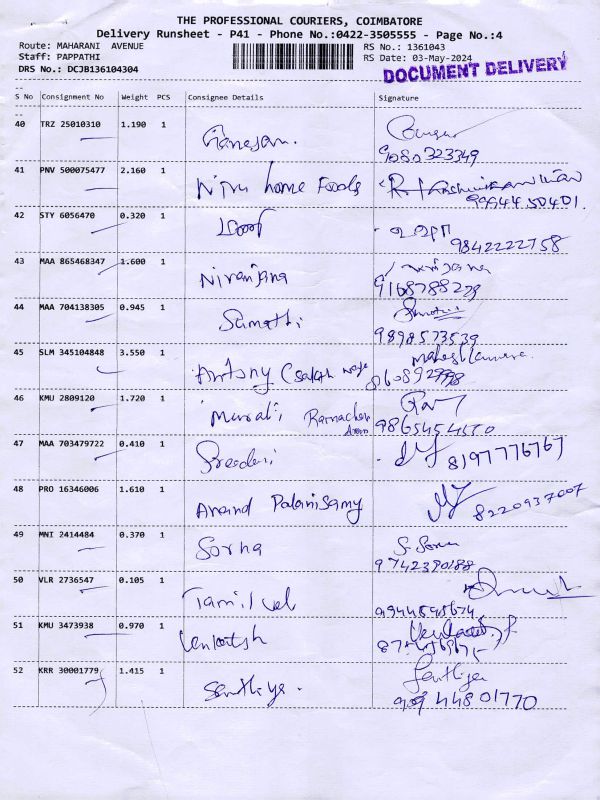 THE PROFESSIONAL COURIERS, COIMBATORE
Delivery Runsheet - P41 - Phone No.:0422-3505555 - Page No.:4
Route: MAHARANI AVENUE
RS No.: 1361043
Staff: PAPPATHI
RS Date: 03-May-2024
DRS No.: DCJB136104304
DOCUMENT DELIVERY
S No Consignment No Weight PCS Consignee Details Signature
40 TRZ 25010310 1.190 1 Ganesan.
9080323349
41 PNV 500075477 2.160 1 Niru home Foods
9994450401
42 STY 6056470 0.320 1
9842222758
43 MAA 865468347 1.600 1 Niranjana
9168788279
44 MAA 704138305 0.945 1 Sumathi
9898573539
45 SLM 345104848 3.550 1 Antony
46 KMU 2809120 1.720 1 Murali Ramachan
47 MAA 703479722 0.410 1 Sreedevi
8197776767
48 PRO 16346006 1.610 1 Anand Palanisamy
8220937007
49 MNI 2414484 0.370 1 Sorna
9742390188
50 VLR 2736547 0.105 1 Tamil vel
9944545674
51 KMU 3473938 0.970 1 Venkatesh
52 KRR 30001779 1.415 1 Senthiya.
44801770